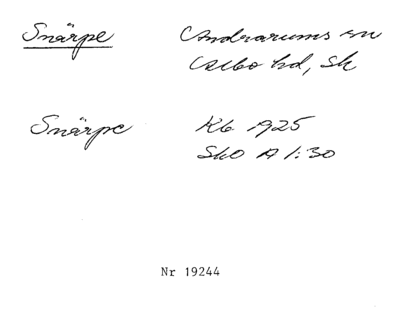 Snärpe Andrarums sn
Albo hd, Sk
Snärpe Kb 1925
SkO A 1:30
Nr 19244